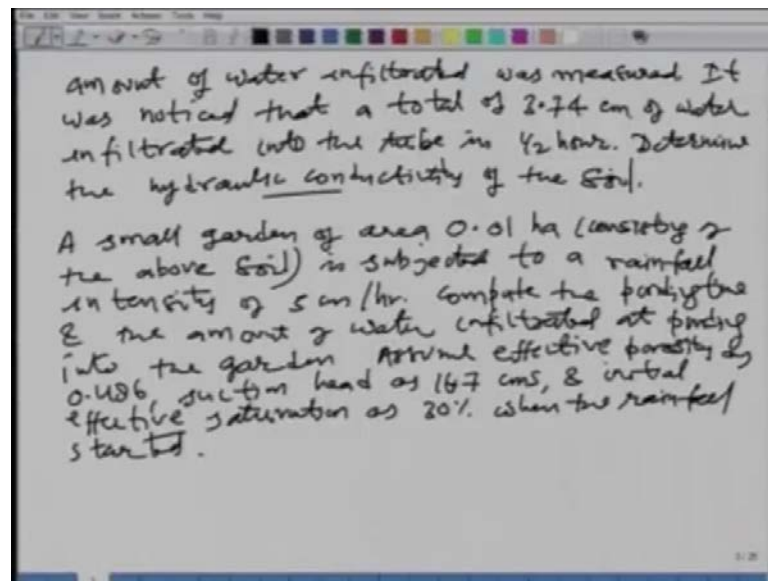 amount of water infiltrated was measured It
was noticed that a total of 3.74 cm of water
infiltrated into the tube in 1/2 hour. Determine
the hydraulic conductivity of the soil.
A small garden of area 0.01 ha (consisting of
the above soil) is subjected to a rainfall
intensity of 5 cm/hr. compute the ponding time
& the amount of water infiltrated at ponding
into the garden Assume effective porosity as
0.486, suction head as 16.7 cms, & initial
effective saturation as 30% when the rainfall
started.